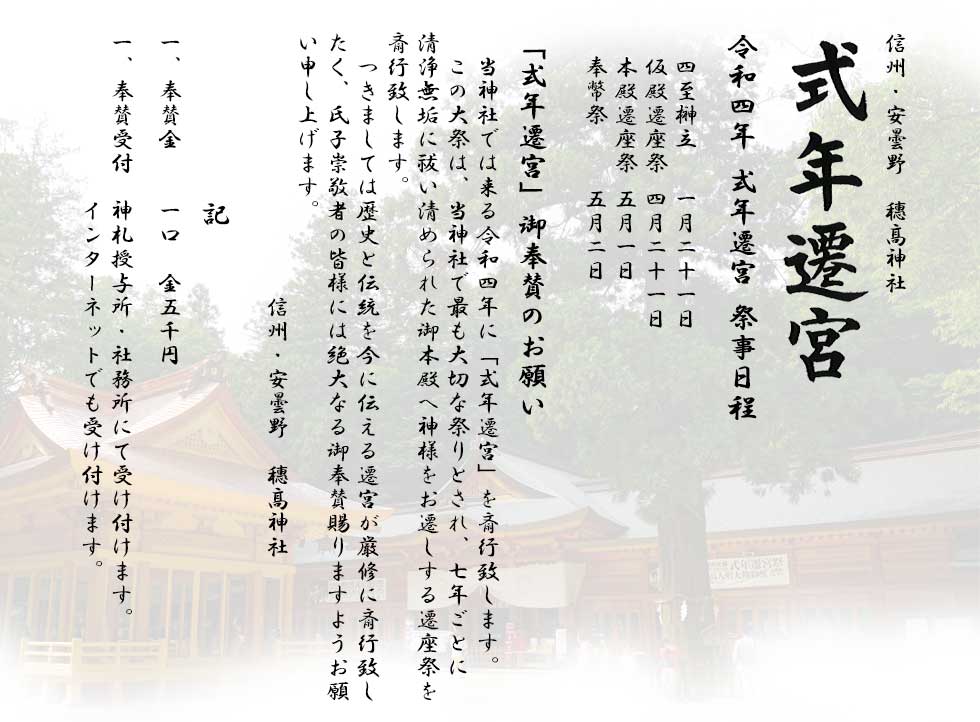 信州・安曇野　穗高神社
式年遷宮
令和四年　式年遷宮　祭事日程
四至榊立　一月二十一日
仮殿遷座祭　四月二十一日
本殿遷座祭　五月一日
奉幣祭　五月二日
「式年遷宮」御奉賛のお願い
当神社では来る令和四年に「式年遷宮」を斎行致します。
この大祭は、当神社で最も大切な祭りとされ、七年ごとに
清浄無垢に祓い清められた御本殿へ神様をお遷しする遷座祭を
斎行致します。
つきましては歴史と伝統を今に伝える遷宮が厳修に斎行致し
たく、氏子崇敬者の皆様には絶大なる御奉賛賜りますようお願
い申し上げます。
信州・安曇野　穗高神社
記
一、奉賛金　一口　金五千円
一、奉賛受付　神札授与所・社務所にて受け付けます。
インターネットでも受け付けます。